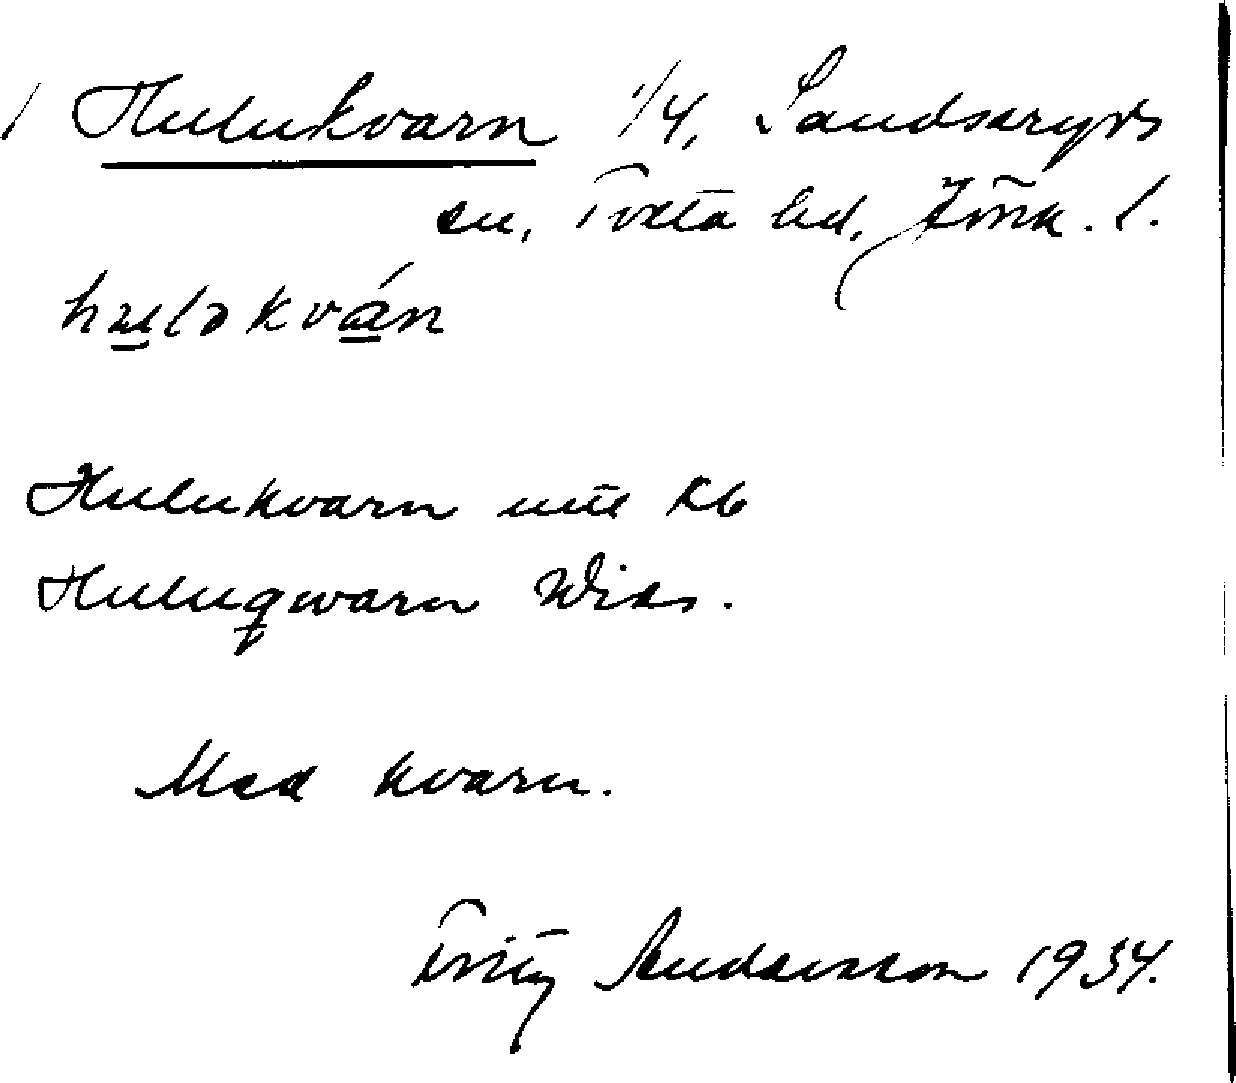 / Hulukvarn 1/4, Sandseryds
sn, Tveta hd, Jönk. l.
huləkván
Hulukvarn utt Kb
Huluqwarn Wids.
Med kvarn.
Fritz Andersson 1934.